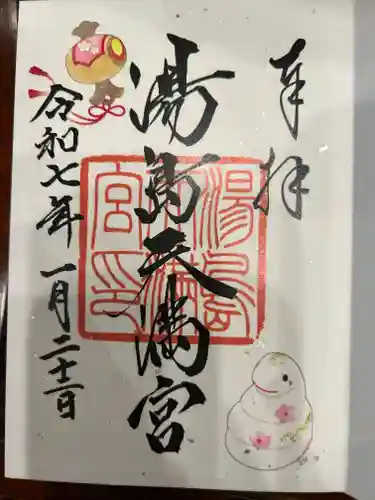 奉拝
湯島天満宮
湯島
天満
宮印
令和七年 一月二十二日